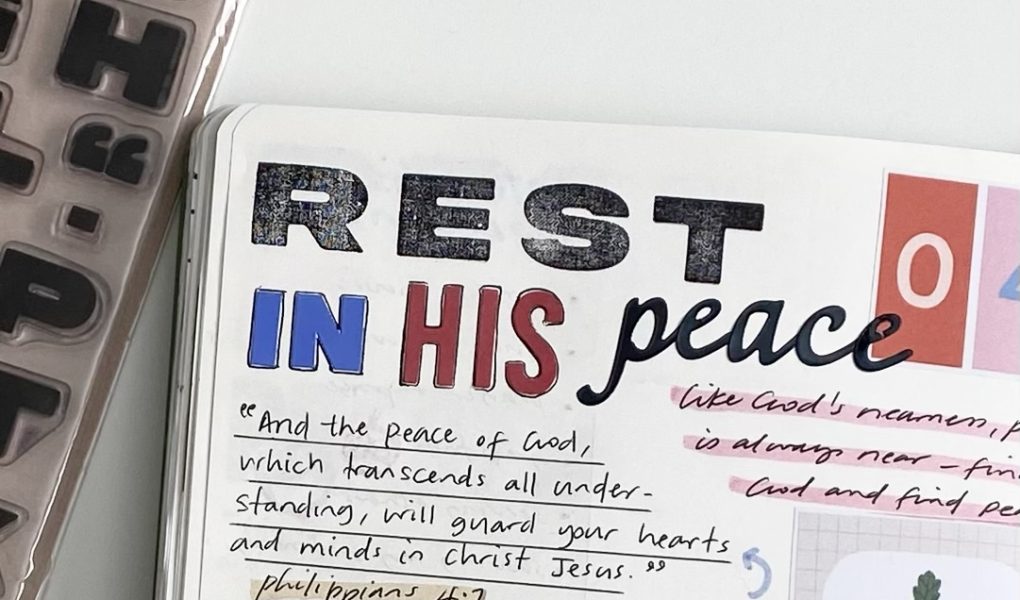 REST
IN HIS peace
"And the peace of God,
which transcends all under-
standing, will guard your hearts
and minds in Christ Jesus."
philippians 4:7
like God's nearness,
is always near –
God and find
O
H
P